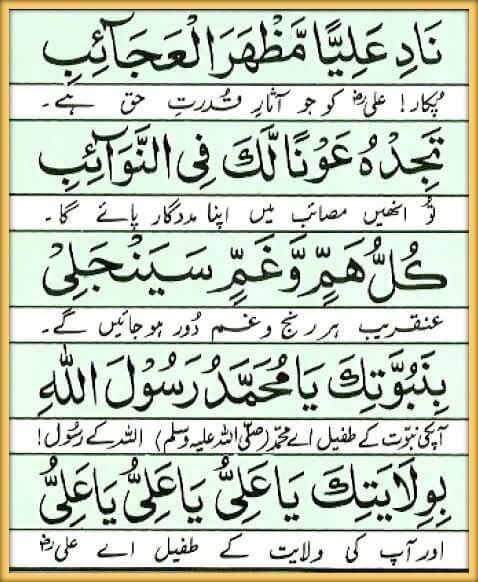 نَادِ عَلِيًّا مَّظْهَرَ الْعَجَآئِبِ
پُکار! علیؓ کو جو آثارِ قُدرتِ حق ہے۔
تَجِدْهُ عَوْنًا لَّكَ فِی النَّوَآئِبِ
تُو انھیں مصائب میں اپنا مددگار پائے گا۔
كُلُّ هَمٍّ وَّغَمٍّ سَيَنْجَلِیْ
عنقریب ہر رنج و غم دُور ہو جائیں گے۔
بِنَبُوَّتِكَ يَا مُحَمَّدُ رَسُوْلَ اللّٰهِ
آپکی نبوّت کے طفیل اے محمّد (صلّی اللہ علیہ وسلّم) اللہ کے رسُول!
بِوِلَايَتِكَ يَا عَلِیُّ يَا عَلِیُّ يَا عَلِیُّ
اور آپ کی ولایت کے طفیل اے علیؓ